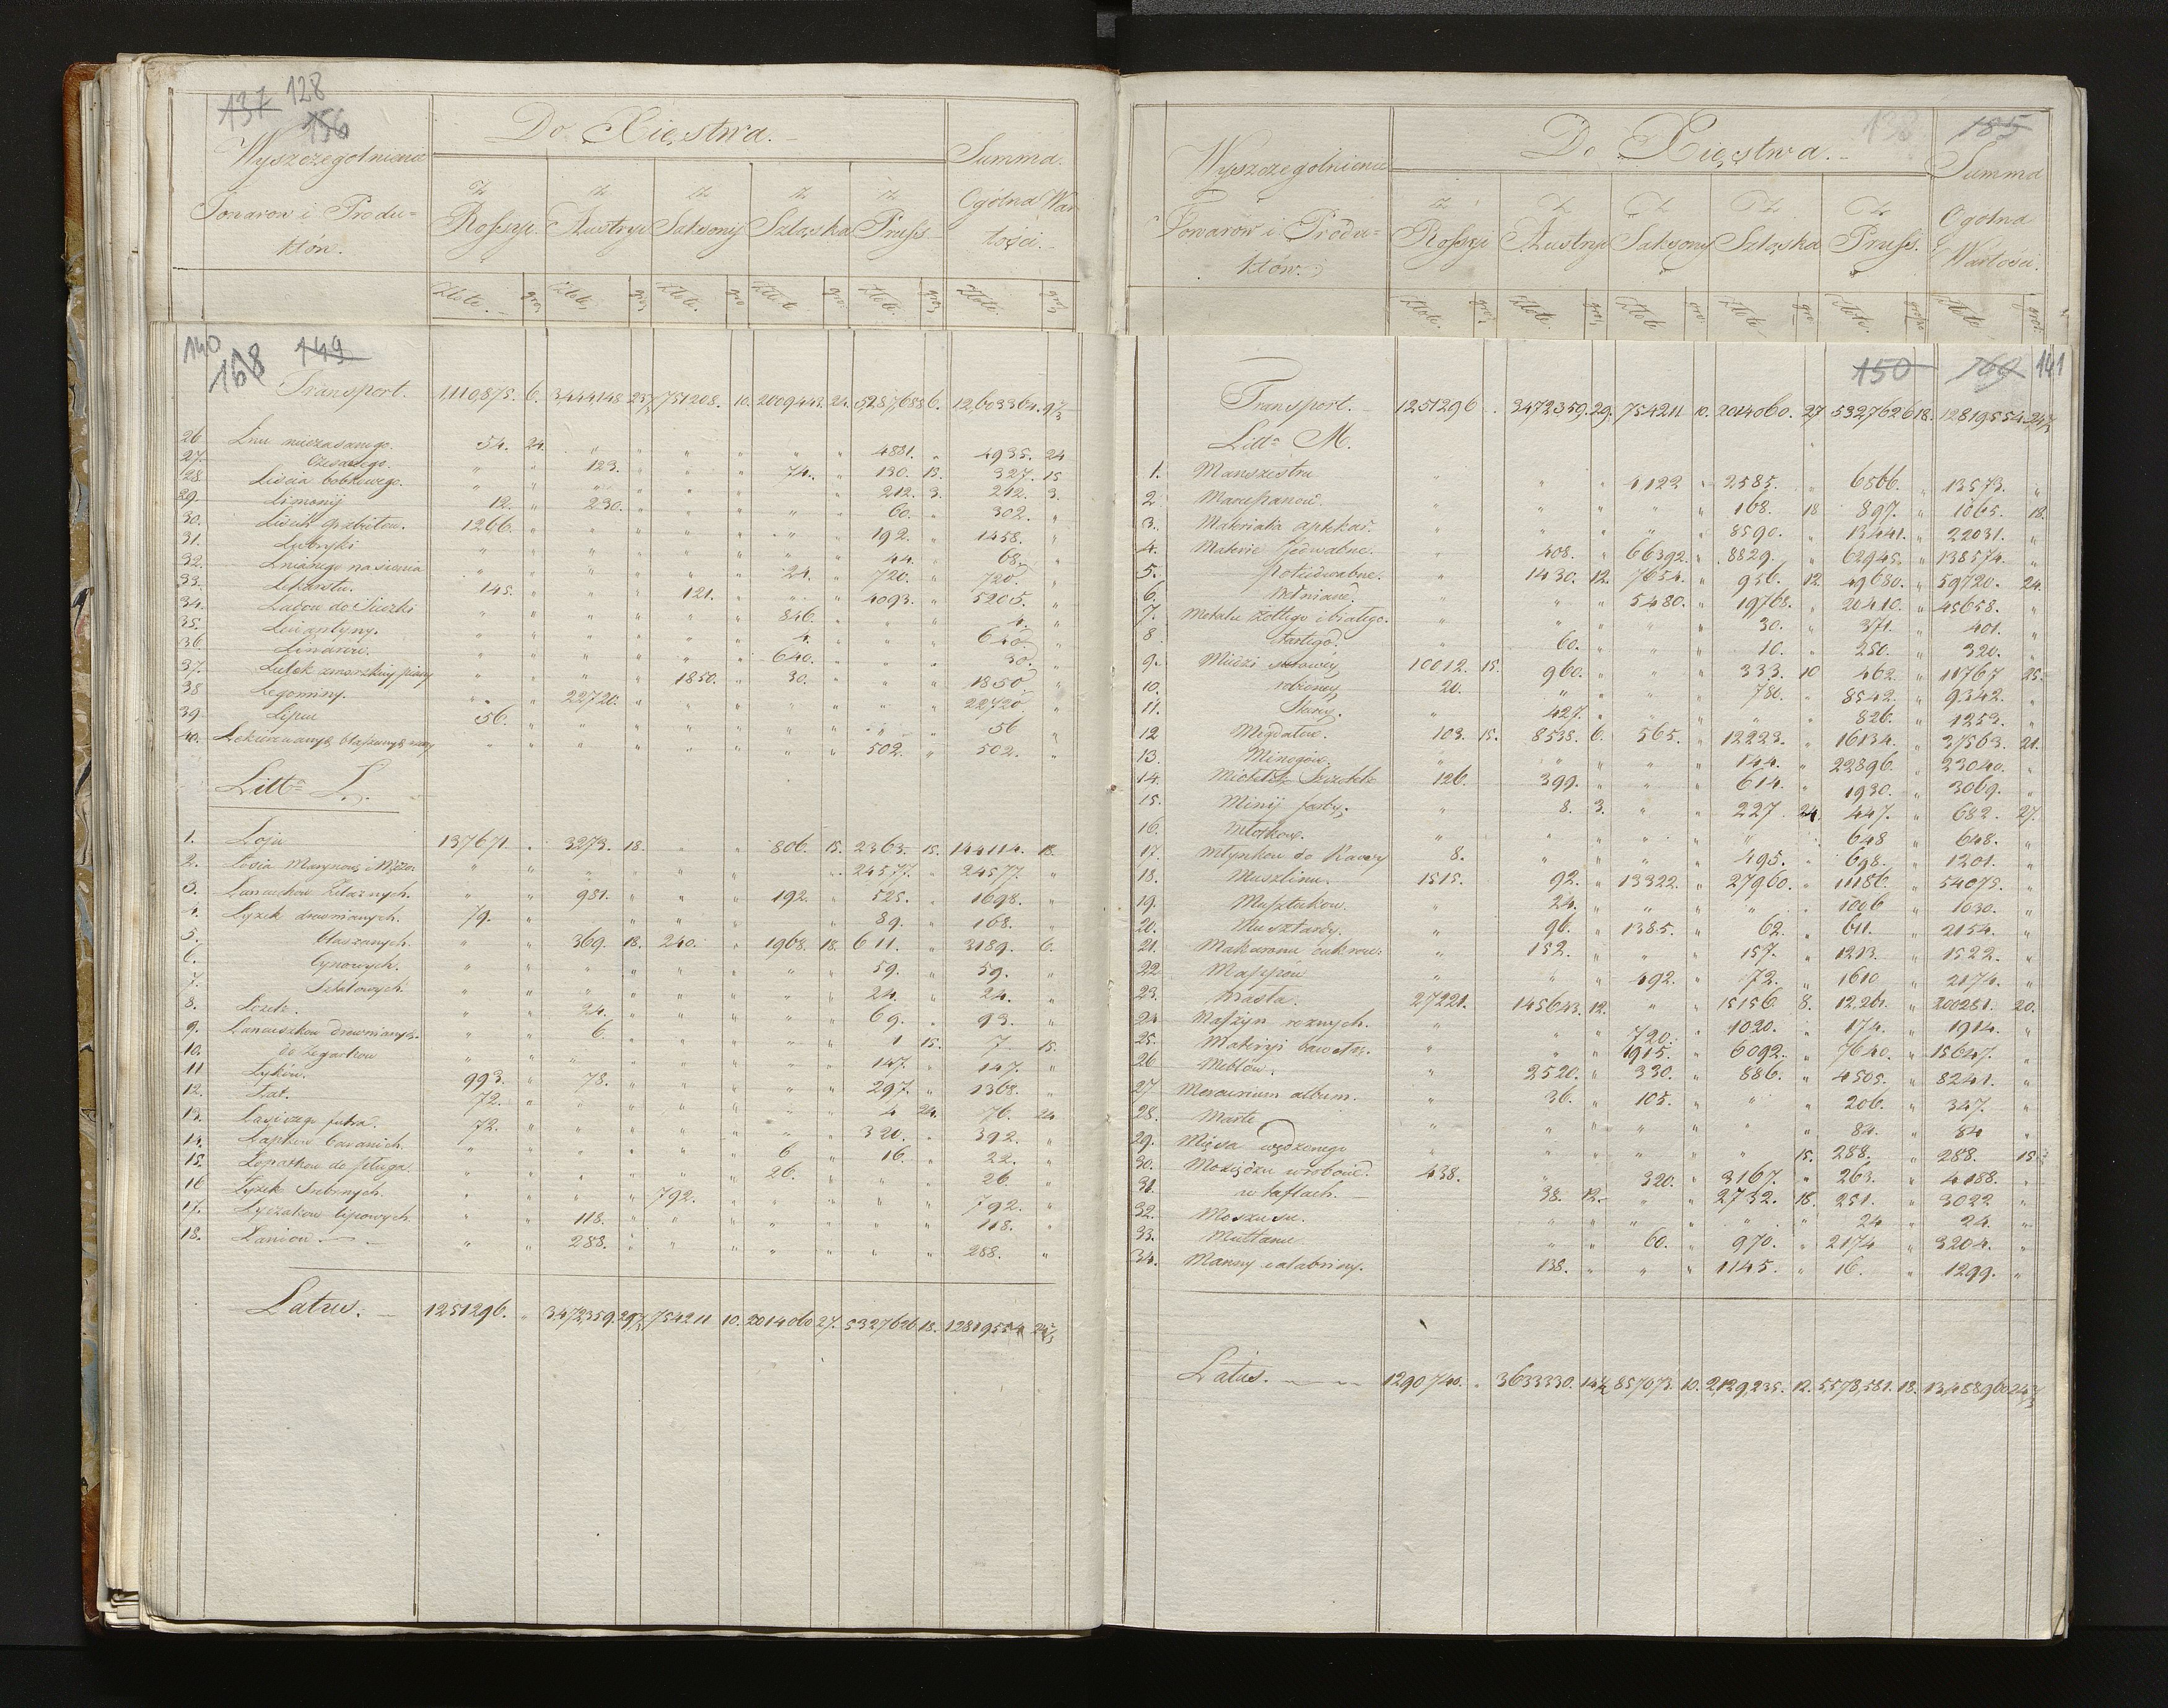 137 128
156
Wyszczegolnienie
Towarow i Produ=
któw.
Do Xięstwa.
Summa.
Ogólna War
tości.
z Rossyi. z Austryi z Saksonij z Szląska z Pruss
Złote. gro: Złote. gro: Złote. gro: Złote. gro: Złote. gro: Złote. gro:
140
168 149
Transport. 1110,875. 6. 3,444,148 25 751208. 10. 2009443. 24. 5,287,688 6. 12,603364.
26. Lnu nieczasanego. 54. 24. " " " " " " 4881. " 4935. 24
27. Czesanego. " " 123. " " " 74. " 130. 13. 327. 15
28. Liścia bobkowego. " " " " " " " " 212. 3. 212. 3.
29. Limonij 12. " 230. " " " " " 60. " 302. "
30. 1266. " " " " " " " 192. " 1458. "
31. Lubryki " " " " " " 24. " 44. " 68. "
32. Lnianego nasienia " " " " " " " " 720. " 720. "
33. Lekarstw. 145. " " " 121. " 846. " 4093. " 5205. "
34. " " " " " " 4. " " " 4. "
35. Lewantyny. " " " " " " 640. " " " 640. "
36. " " " " " " 30. " " " 30. "
37. " " " " 1850. " " " " " 1850 "
38 Legominy. " " 22720. " " " " " " " 22720. "
39. Lipcu 56. " " " " " " " " " 56 "
40. " " " " " " " " 502. " 502. "
Litt: Ł.
1. Łoju 137671. " 3273. 18. " " 806. 15. 2363. 15. 144114. 18.
2. " " " " " " " " 24577. " 24577. "
3. Łancuchów Żelaznych. " " 981. " " " 192. " 525. " 1698. "
4. Łyżek drewnianych. 79. " " " " " " " 89. " 168. "
5. blaszanych. " " 369. 18. 240. " 1968. 18. 611. " 3189. 6.
6. Cynowych. " " " " " " " " 59. " 59. "
7. " " " " " " " " 24. " 24. "
8. " " 24. " " " " " 69. " 93. "
9. Łancuszkow drewnianych. " " 6. " " " " " 1 15. 7. 15.
10. do Zegarkow " " " " " " " " 147. " 147. "
11 Łyków. 993. " 78. " " " " " 297. " 1368. "
12. Łat. 72. " " " " " " " 4 24. 76. 24.
13. futra. 72. " " " " " " " 320. " 392. "
14. baranich. " " " " " " 6 " 16. " 22. "
15. Łopatkow do pługa. " " " " " " 26. " " " 26. "
16 Łyżek Srebrnych. " " " " 792. " " " " " 792. "
17. lipowych. " " 118. " " " " " " " 118. "
18. Łaniow " " 288. " " " " " " " 288. "
Latus. 1251296. " 3472359. 754211 10. 2014060 27. 5327626 18. 12819554
138 185
Wyszczegolnienie
Towarów i Produ=
któw.
Do Xięstwa.
Summa
Ogólna
Wartości.
z Rossyi z Austryi z Saksony z Szląska z Pruss.
Złote. gro: Złote. gro: Złote gro: Złote gro: Złote. grosze Złote. gro:
150 169 141
Transport. 1251296 . 3472359. 29. 754211 10. 2014060. 27 5327626 18. 12819554.
Litt: M.
1. Manszestru " " " " 4122 " 2585. " 6866. " 13573. "
2. Marcipanow. " " " " " " 168. 18 897. " 1065. 18.
3. Materiała aptekar. " " " " " " 8590. " 13441. " 22031. "
4. Materie Jedwabne. " " 408. " 66392. " 8829. " 62945. " 138574. "
5. półiedwabne. " " 1430. 12. 7654. " 956. 12. 49680. " 59720. 24.
6. wełniane. " " " " 5480. " 19768. " 20410. " 45658. "
7. Metalu żółtego i białego. " " " " " " 30. " 371. " 401. "
8 " " 60. " " " 10. " 250. " 320. "
9. Miedzi surowey 10012. 15. 960. " " " 333. 10 462. " 11767 25.
10. robioney 20. " " " " " 780. " 8542. " 9342. "
11. Starey. " " 427. " " " " " 826. " 1253. "
12 Migdałow. 103. 15. 8535. 6. 565. " 12223. " 16134. " 37563. 21.
13. Minogów. " " " " " " 144. " 22896. " 23040. "
14. 126. " 399. " " " 614. " 1930. " 3069. "
15. Minij farby. " " 8. 3. " " 227. 24. 447. " 682. 27.
16. " " " " " " " " 648 " 648. "
17. Młynkow do Kawy 8. " " " " " 495. " 698. " 1201. "
18. Muszlinu. 1515. " 92. " 13322. " 27960. " 11186. " 54075. "
19. Musztukow. " " 24. " " " " " 1006 " 1030. "
20. Musztardy. " " 96. " 1385. " 62. " 611. " 2154. "
21. Makaronu cukrow. " " 152. " " " 157. " 1213. " 1522. "
22. Mappów " " " " 492. " 72. " 1610 " 2174. "
23. Masła. 27221. " 145643. 12. " " 15156. 8. 12261. " 200281. 20.
24 Maszyn roznych. " " " " 720. " 1020. " 174. " 1914. "
25. Materyi bawełn. " " " " 1915. " 6092. " 7640. " 15647. "
26 Meblów. " " 2520. " 330. " 886. " 4505. " 8241. "
27 Mercurium album. " " 36. " 105. " " " 206. " 347. "
28. " " " " " " " " 84. " 84 "
29. Mięsa wędzonego " " " " " " " 15. 288. " 288. 15.
30. Mosiądzu w robocie. 438. " " " 320. " 3167. " 263. " 4188. "
31. w taflach. 38. 12. " " 2732. 18. 251. " 3022 "
32. Moszusu. " " " " " " 24 " 24. "
33. Multanu " " 60. " 970. " 2174 " 3204. "
34. Manny calabriny. 138. " " " 1145. " 16. " 1299. "
Latus. 1290740. . 3633330. 857073. 10. 2,129,235. 12. 5,578,581. 18. 13,488960